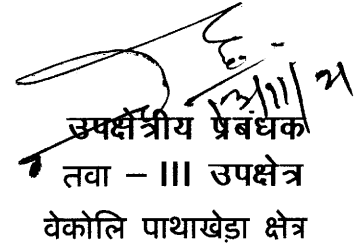 उपक्षेत्रीय प्रबंधक
तवा – III उपक्षेत्र
वेकोलि पाथाखेड़ा क्षेत्र